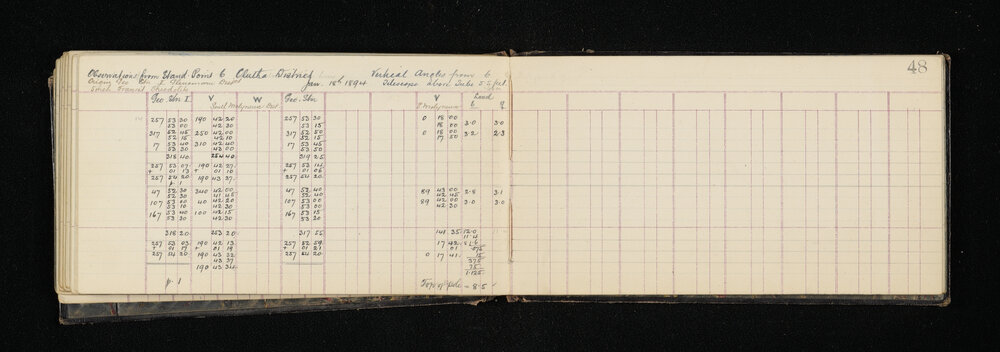 48
Observations from Stand Point 6 Clutha District Vertical Angles from 6
Origin Geo Stn I Glenomaru Dist Jan. 18th 1894 Telescope above Tube 5.5 feet
5 inch Transit Theodolite
Geo. Stn I V W Geo. Stn V Land
Small Molyneux Dist T Molyneux 6
257 53 30 190 42 20 257 53 30 0 18 00
53 00 42 30 53 15 18 00 3.0 3.0
317 52 45 250 42 00 317 52 50 0 18 00 3.2 2.3
52 15 42 10 52 15 17 50
17 53 40 310 42 40 17 53 45
53 30 43 00 53 50
318 40 254 40 319 25
257 53 07 190 42 27 257 53 14
+ 01 13 + 01 10 + 01 06
257 54 20 190 43 37 257 54 20
p. 1
47 52 30 340 42 00 47 52 40 89 43 00 2.8 3.1
52 30 41 45 52 40 42 45
107 53 00 40 42 20 107 53 00 89 42 00 3.0 3.0
53 10 42 30 53 00 42 30
167 53 40 100 42 15 167 53 15
53 30 42 30 53 20
318 20 253 20 317 55 141 35 12.0
11.4
257 53 03 190 42 13 257 52 59 17 42
+ 01 17 + 01 19 + 01 21 01
257 54 20 190 43 32 257 54 20 0 17 41 15
43 37 375
190 43 34 75
1.125
p. 1 Top of pole = 8.5